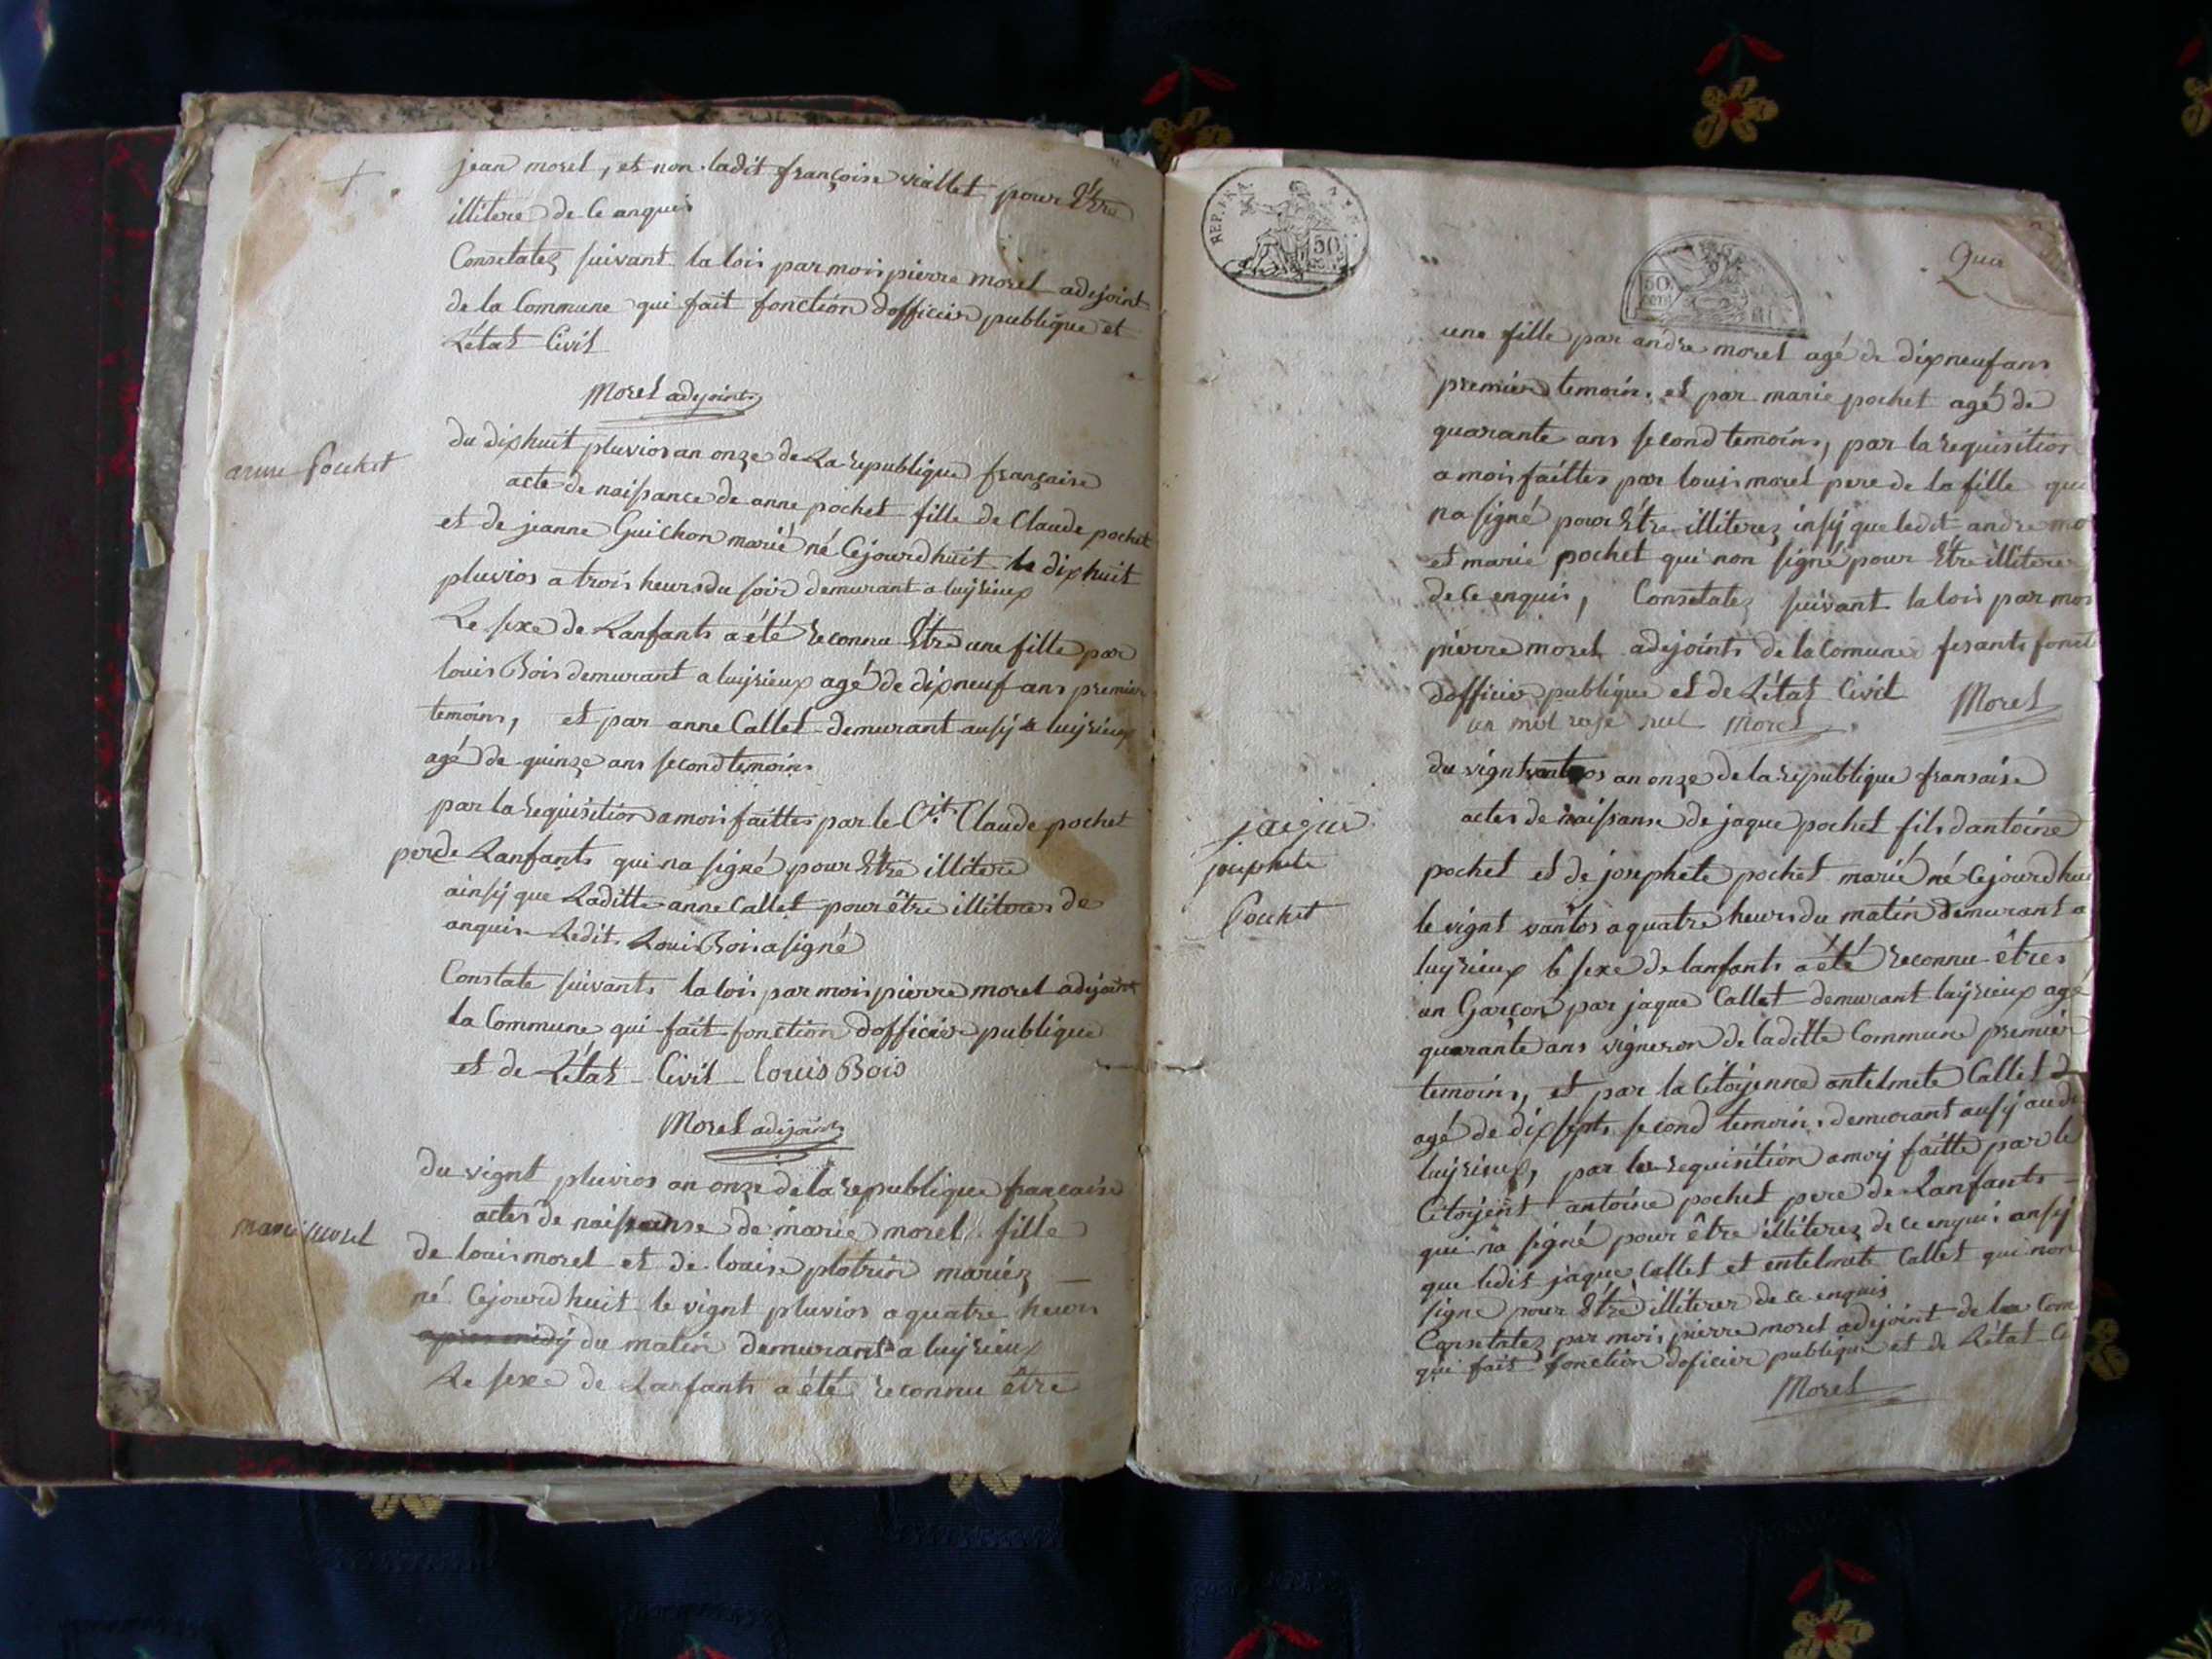 jean morel, et non ladit françoise viallet pour Être
illitere de Ce anquis
Constatez suivant la lois par mois pierre morel adejoint
de la Commune qui fait fonction dofficier publique et
Létat Civil
Morel adejoint
anne Pochet
du dixhuit pluvios an onze de La republique française
acte de naissance de anne pochet fille de Claude pochet
et de jeanne Guichon marié né Cejourdhuit le dixhuit
pluvios a trois heurs du soir demurant a luijrieux
Le sexe de Lanfants a été reconnu Être une fille par
louis Bois demurant a luijrieux agé de dixneuf ans premier
temoins, et par anne Callet demurant ausij a luijrieux
agé de quinze ans second temoins
par la requisition a mois faittes par le Cit. Claude pochet
perde Lanfants qui na signé pour Etre illitere
ainsij que Laditte anne Callet pour être illiteres de
anquis Ledit Louis Bois a signé
Constate suivants la lois par mois pierre morel adejoint
la Commune qui fait fonction dofficier publique
et de Létat Civil louis Bois
Morel adejoint
marie morel
du vignt pluvios an onze de la republique française
actes de naissanse de marie morel fille
de louis morel et de louise plotrin mariéz
né Cejourdhuit le vignt pluvios a quatre heurs
apres midij du matin demurant a luijrieux
Le sexe de Lanfants a été reconnu être
REP. FRA
50
50
cent
Que
une fille par andre morel agé de dixneuf ans
premier temoins et par marie pochet agé de
quarante ans second temoins, par la requisition
a mois faittes par louis morel pere de la fille que
na signé pour Être illiterez insij que ledit andre mo
et marie pochet qui non signé pour Être illitere
de Ce enquis, Constatez suivant la lois par mois
pierre morel adejoints de la Comune fesants fonct
dofficier publique et de Létat Civil Morel
un mot rase nul Morel
du vignt vantos an onze de la republique fransaise
jaque
josephete
Pochet
actes de naissanse de jaque pochet fils dantoine
pochet et de josephete pochet marié né Cejourdhui
le vignt vantos a quatre heurs du matin demurant a
luijrieux le sexe de lanfants a été reconnu êtres
un Garçon par jaque Callet demurant luijrieux agé
quarante ans vigneron de laditte Commune premier
temoins, et par la Citoijenne antelmete Callet
agé de dix sept second temoins demurant ausij audi
luijrieux, par la requisition a moij faitte par le
Citoijent antoine pochet pere de Lanfants
qui na signé pour être illiterez de ce enquis ansij
que ledit jaque Callet et entelmete Callet qui non
signe pour Être illiterer de ce enquis
Constatez par mois pierre morel adejoint de la Com
qui fait fonction doficier publique et de Létat Ci
Morel